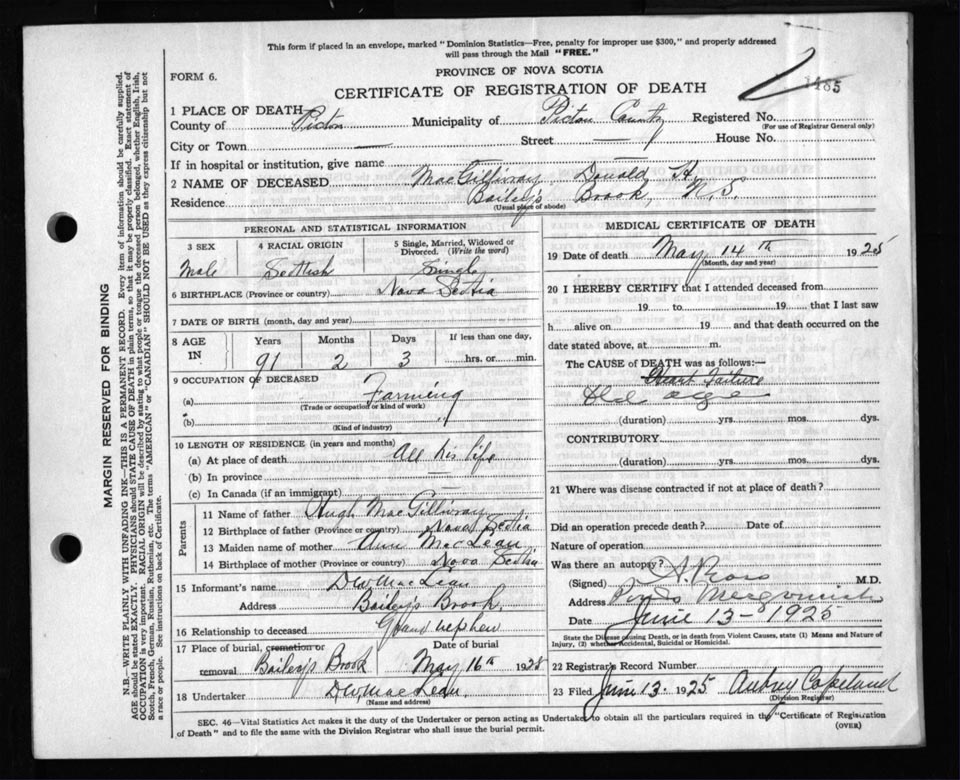 This form if placed in an envelope, marked "Dominion Statistics–Free, penalty for improper use $300," and properly addressed
will pass through the Mail "FREE."
FORM 6.
PROVINCE OF NOVA SCOTIA
CERTIFICATE OF REGISTRATION OF DEATH
1 PLACE OF DEATH
County of Pictou Municipality of Pictou County Registered No.
(For use of Registrar General only)
City or Town — Street — House No.
If in hospital or institution, give name —
2 NAME OF DECEASED MacGillivray Donald H.
Residence Bailey's Brook, N.S.
(Usual place of abode)
PERSONAL AND STATISTICAL INFORMATION
3 SEX 4 RACIAL ORIGIN 5 Single, Married, Widowed or Divorced. (Write the word)
Male Scottish Single
6 BIRTHPLACE (Province or country) Nova Scotia
7 DATE OF BIRTH (month, day and year)
8 AGE IN Years Months Days If less than one day,
91 2 3 hrs. or min.
9 OCCUPATION OF DECEASED
(a) Farming
(Trade or occupation or kind of work)
(b) "
(Kind of industry)
10 LENGTH OF RESIDENCE (in years and months)
(a) At place of death All his life
(b) In province —
(c) In Canada (if an immigrant) —
Parents
11 Name of father Hugh MacGillivray
12 Birthplace of father (Province or country) Nova Scotia
13 Maiden name of mother Ann MacLean
14 Birthplace of mother (Province or country) Nova Scotia
15 Informant's name D W MacLean
Address Bailey's Brook.
16 Relationship to deceased Grand nephew
17 Place of burial, cremation or removal Bailey's Brook Date of burial May 16th 1928
18 Undertaker D W MacLean.
(Name and address)
MEDICAL CERTIFICATE OF DEATH
19 Date of death May 14th 1925
(Month, day and year)
20 I HEREBY CERTIFY that I attended deceased from
19 to 19 that I last saw
h alive on 19 and that death occurred on
date stated above, at m.
The CAUSE of DEATH was as follows:—
Heart Failure
Old age
(duration) yrs. mos. dys.
CONTRIBUTORY
(duration) yrs. mos. dys.
21 Where was disease contracted if not at place of death?
Did an operation precede death? Date of
Nature of operation
Was there an autopsy?
(Signed) M.D.
Address
Date June 13–1925
State the Disease causing Death, or in death from Violent Causes, state (1) Means and Nature of
Injury, (2) whether Accidental, Suicidal or Homicidal.
22 Registrar's Record Number
23 Filed June 13. 1925 Aubrey Copeland
(Division Registrar)
SEC. 46–Vital Statistics Act makes it the duty of the Undertaker or person acting as Undertaker to obtain all the particulars required in the "Certificate of Registration
of Death" and to file the same with the Division Registrar who shall issue the burial permit.
(OVER)
MARGIN RESERVED FOR BINDING
N.B.—WRITE PLAINLY WITH UNFADING INK—THIS IS A PERMANENT RECORD. Every item of information should be carefully supplied.
AGE should be stated EXACTLY. PHYSICIANS should STATE CAUSE OF DEATH in plain terms, so that it may be properly classified. Exact statement of
OCCUPATION is very important. RACIAL ORIGIN will be described by stating to what people or tongue the deceased person belonged, whether English, Irish,
Scotch, French, German, Russian, Ruthenian, etc. The terms "AMERICAN" or "CANADIAN" SHOULD NOT BE USED as they express citizenship but not
a race or people. See instructions on back of Certificate.